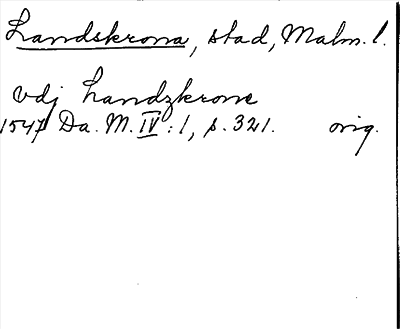 Landskrona, stad, Malm. l.
vdj Landzkrone
1547 Da. M. IV: 1, s. 321. orig.